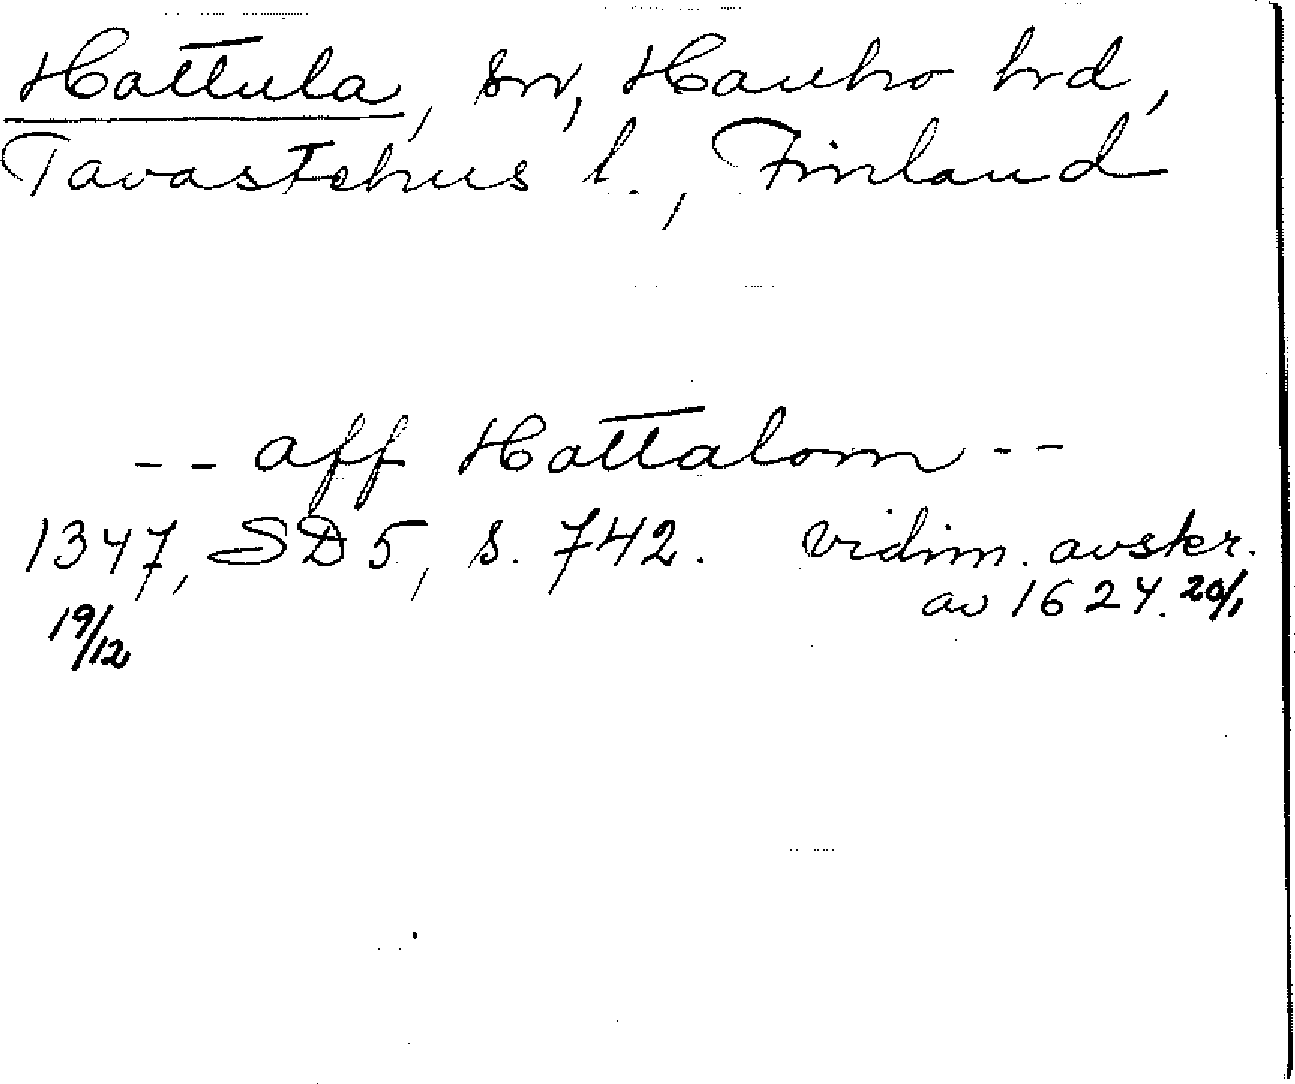 Hattula, sn, Hauho hrd,
Tavastehus l., Finland
-- aff Hattalom --
1347, SD 5, s. 742. vidim. avskr.
19/12 av 1624. 20/1